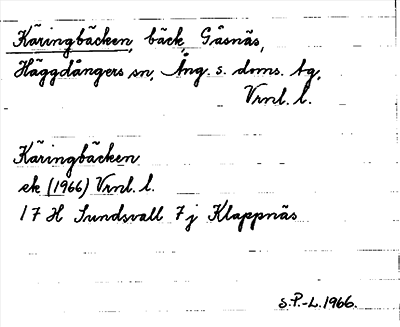 Käringbäcken, bäck, Gåsnäs,
Häggdångers sn, Ång. s. doms. tg,
Vrnl. l.
Käringbäcken
ek (1966) Vrnl. l.
17 H Sundsvall 7 j Klappnäs
S.P.-L. 1966.